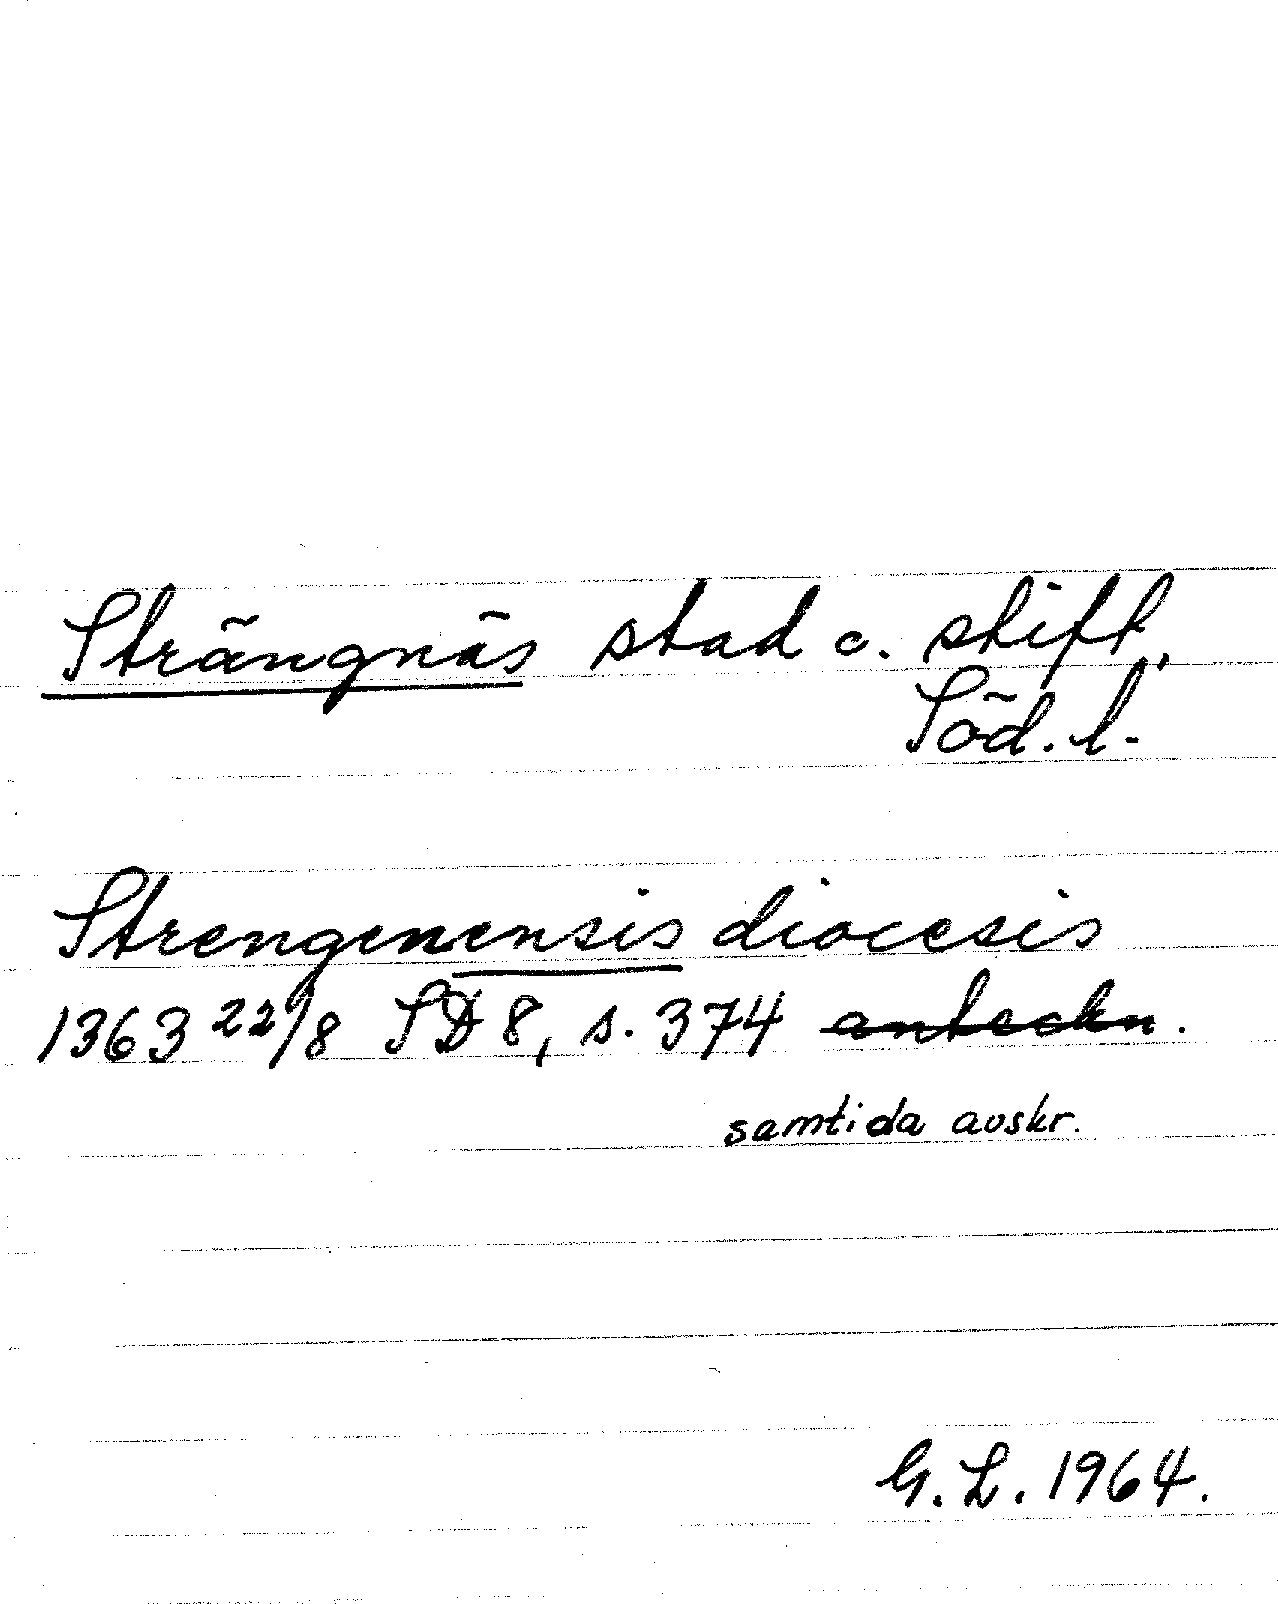 Strängnäs stad o. stift,
Söd. l.
Strengenensis diocesis
1363 22/8 SD 8, s. 374 anteckn.
samtida avskr.
G. L. 1964.